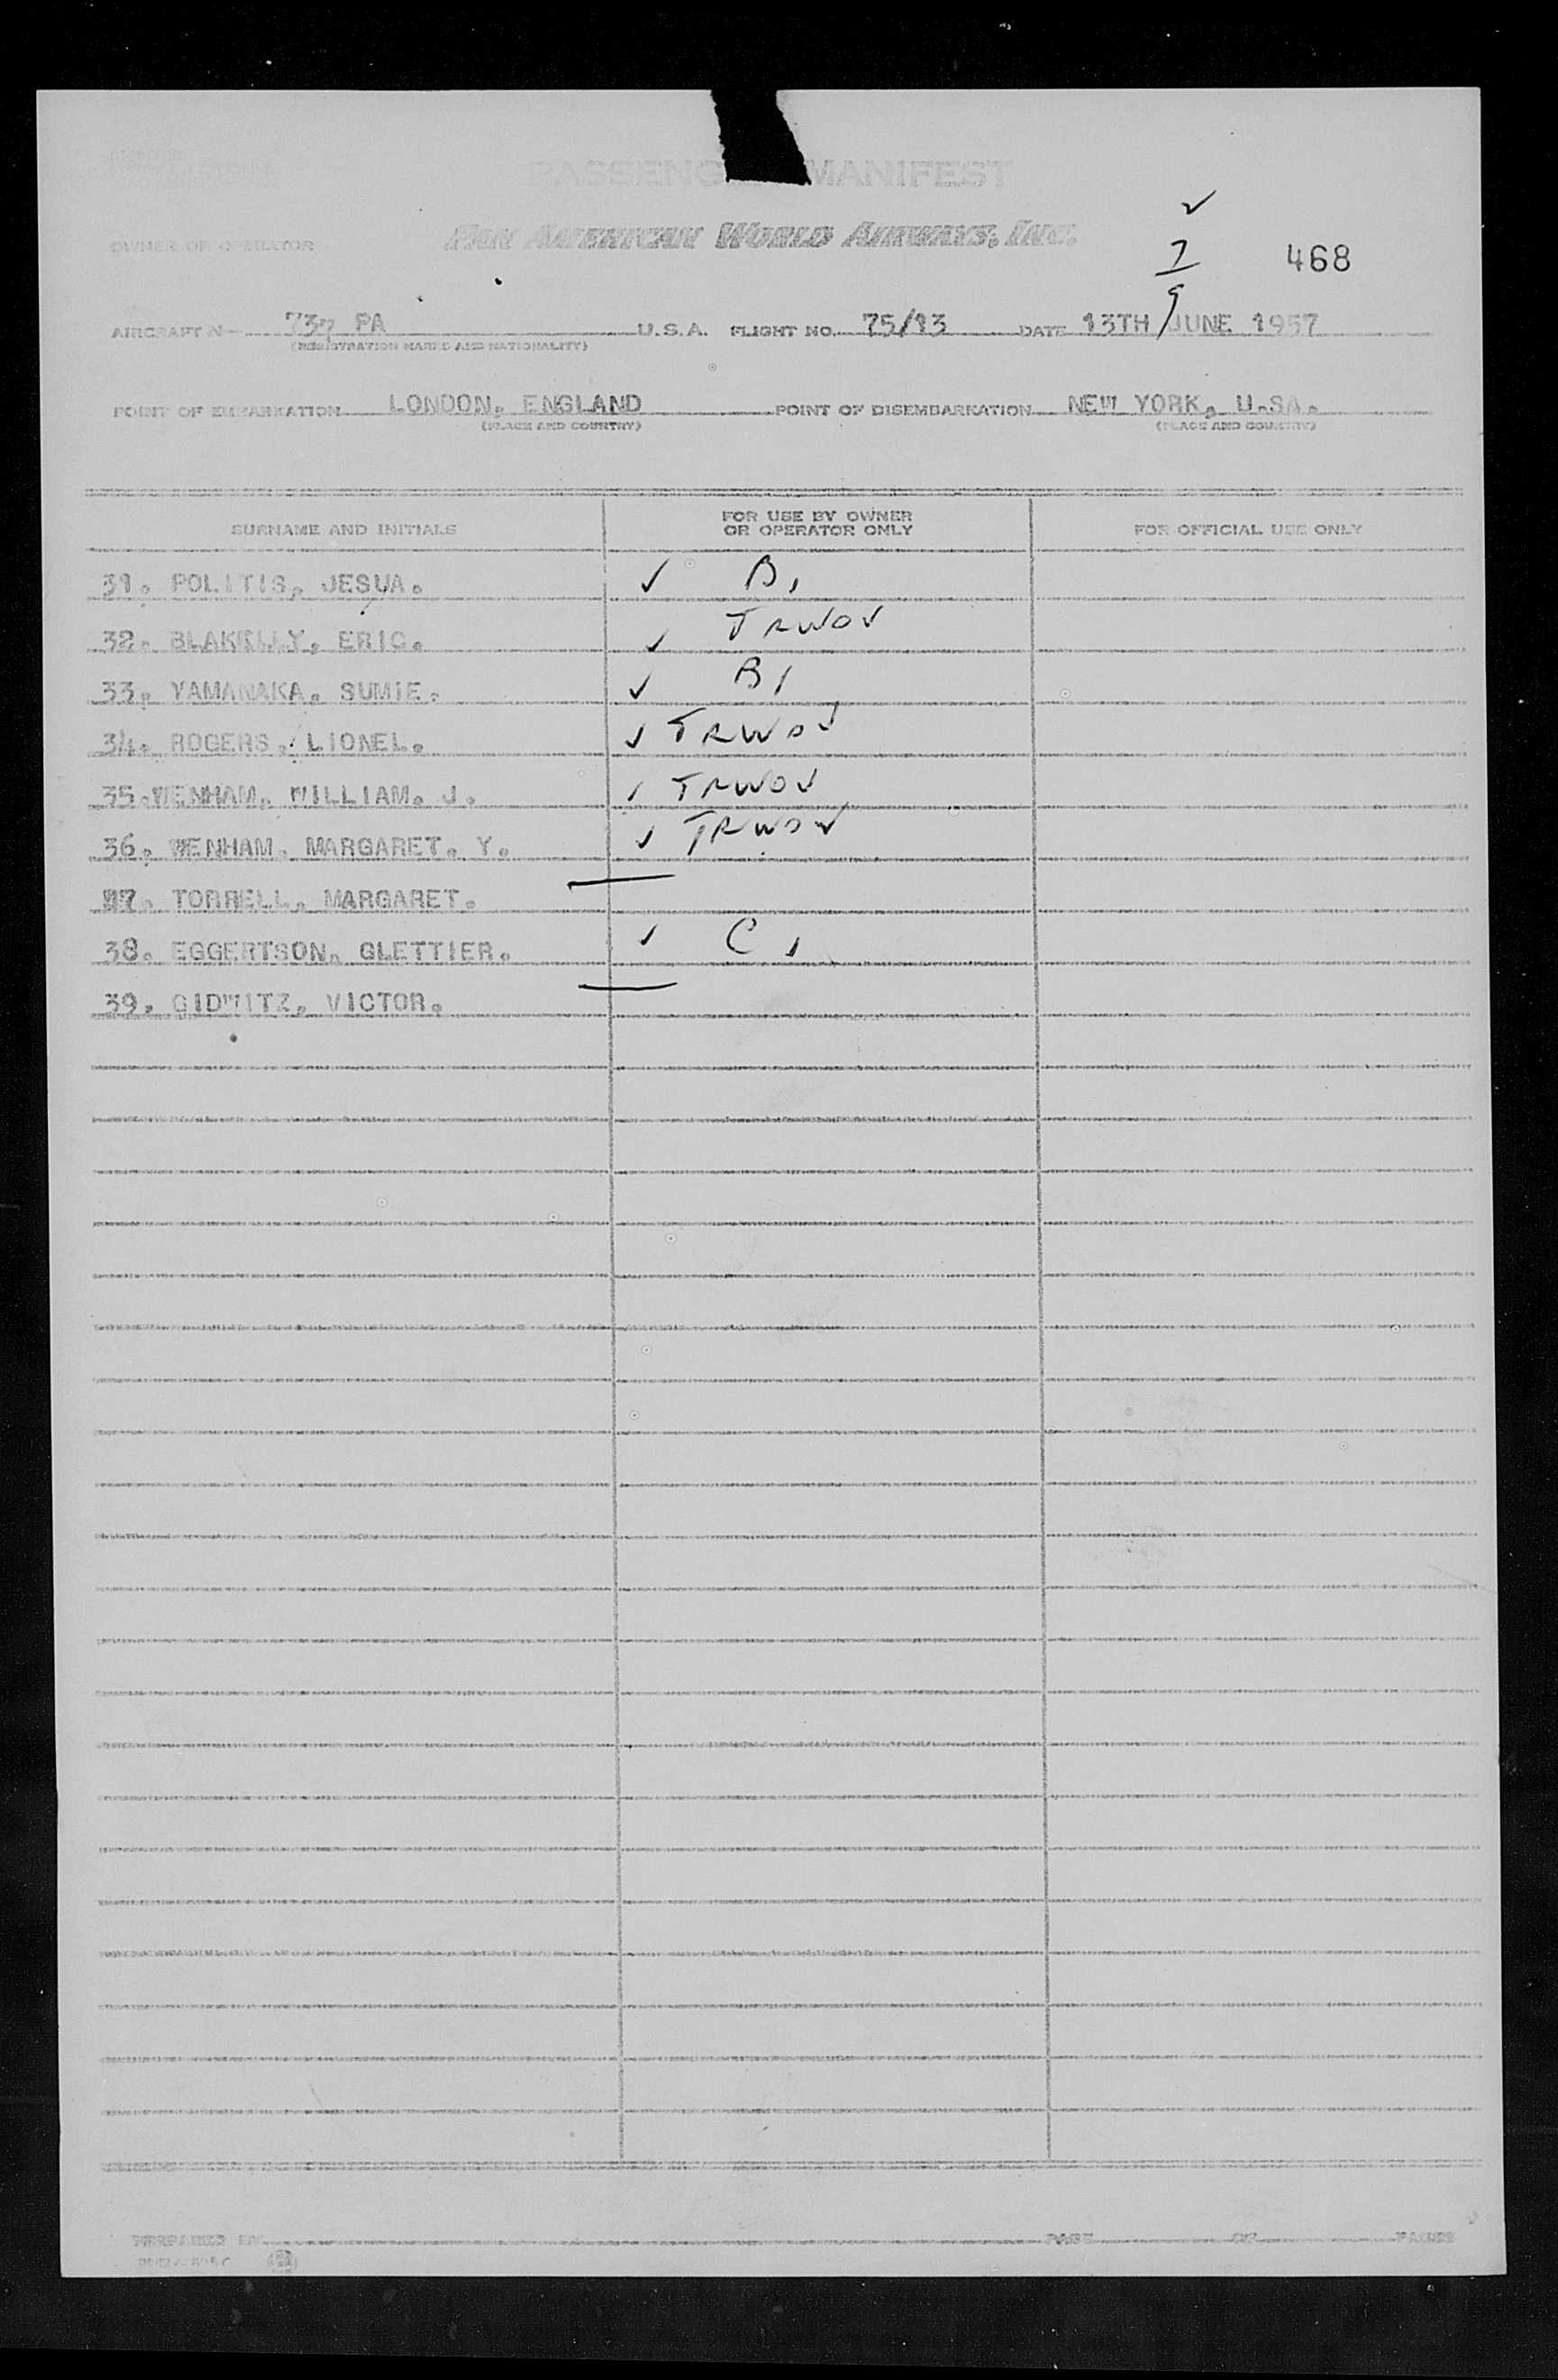 PASSENG MANIFEST
OWNER OR OPERATOR PAN AMERICAN WORLD AIRWAYS, INC.
7
9
468
AIRCRAFT N— PA U.S.A. FLIGHT NO. 75/13 DATE 13TH JUNE 1957
(REGISTRATION MARKS AND NATIONALITY)
POINT OF EMBARKATION LONDON, ENGLAND POINT OF DISEMBARKATION NEW YORK, U.SA.
(PLACE AND COUNTRY) (PLACE AND COUNTRY)
SURNAME AND INITIALS FOR USE BY OWNER OR OPERATOR ONLY FOR OFFICIAL USE ONLY
31. POLITIS, JESUA. ✓ B1
32. BLAKELLY, ERIC. ✓ TRWOV
33. YAMANAKA, SUMIE. ✓ B1
34. ROGERS, LIONEL. ✓ TRWOV
35.WENHAM, WILLIAM. J. ✓ TRWOV
36. WENHAM, MARGARET. Y. ✓ TRWOV
37. TORRELL, MARGARET. —
38. EGGERTSON, GLETTIER. ✓ C1
39. GIDWITZ, VICTOR. —
PREPARED BY PAGE OF PAGES